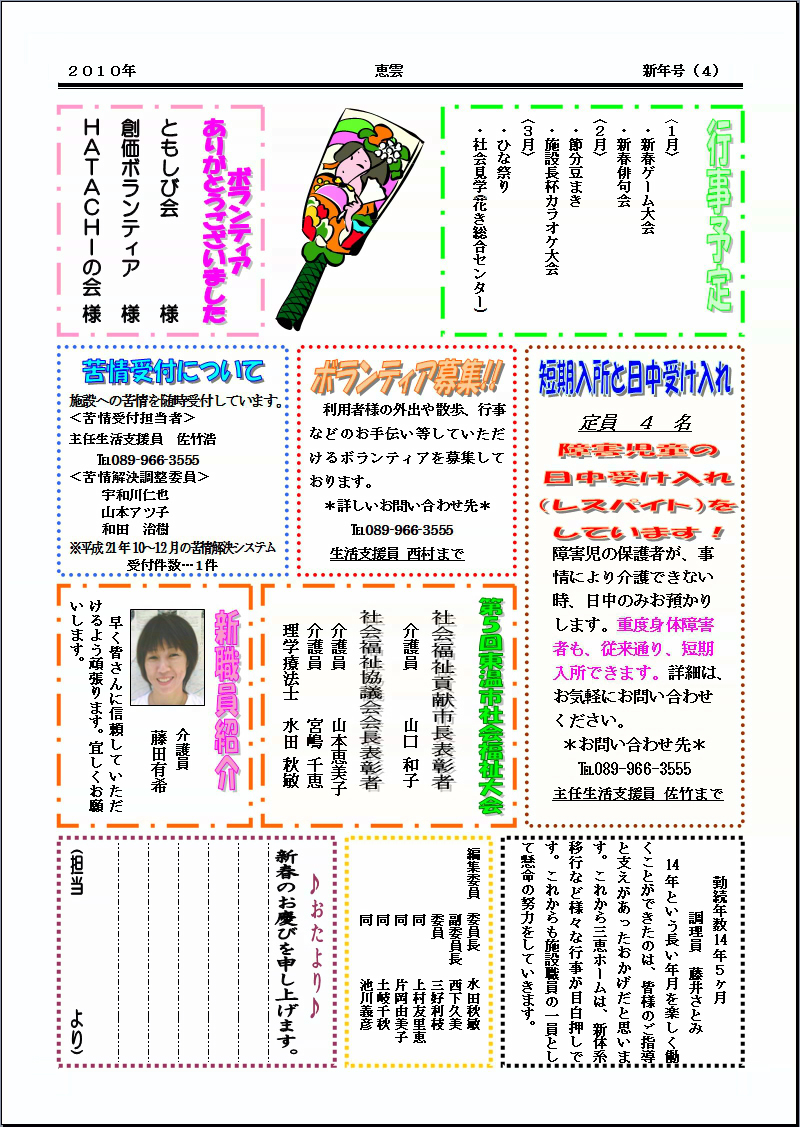 ２０１０年
恵雲
新年号（４）
行事予定
〈１月〉
・新春ゲーム大会
・新春俳句会
〈２月〉
・節分豆まき
・施設長杯カラオケ大会
〈３月〉
・ひな祭り
・社会見学（花き総合センター）
ボランティア
ありがとうございました
ともしび会　様
創価ボランティア　様
ＨＡＴＡＣＨＩの会　様
苦情受付について
施設への苦情を随時受付しています。
＜苦情受付担当者＞
主任生活支援員　佐竹浩
℡089-966-3555
＜苦情解決調整委員＞
宇和川仁也
山本アツ子
和田　治樹
※平成21年10～12月の苦情解決システム
受付件数…１件
ボランティア募集!!
利用者様の外出や散歩、行事
などのお手伝い等していただ
けるボランティアを募集して
おります。
＊詳しいお問い合わせ先＊
℡089-966-3555
生活支援員 西村まで
短期入所と日中受け入れ
定員　４　名
障害児童の
日中受け入れ
（レスパイト）を
しています！
障害児の保護者が、事
情により介護できない
時、日中のみお預かり
します。重度身体障害
者も、従来通り、短期
入所できます。詳細は、
お気軽にお問い合わせ
ください。
＊お問い合わせ先＊
℡089-966-3555
主任生活支援員 佐竹まで
第５回東温市社会福祉大会
社会福祉貢献市長表彰者
介護員　山口 和子
社会福祉協議会会長表彰者
介護員　山本恵美子
介護員　宮嶋 千恵
理学療法士　水田 秋敏
新職員紹介
介護員
藤田有希
早く皆さんに信頼していただ
けるよう頑張ります。宜しくお願
いします。
勤続年数14年５ヶ月
調理員　藤井さとみ
14年という長い年月を楽しく働
くことができたのは、皆様のご指導
と支えがあったおかげだと思いま
す。これから三恵ホームは、新体系
移行など様々な行事が目白押しで
す。これからも施設職員の一員とし
て懸命の努力をしていきます。
編集委員　委員長　水田秋敏
副委員長　西下久美
委員　三好利枝
同　上村友里恵
同　片岡由美子
同　土岐千秋
同　池川義彦
♪おたより♪
新春のお慶びを申し上げます。
（担当　より）